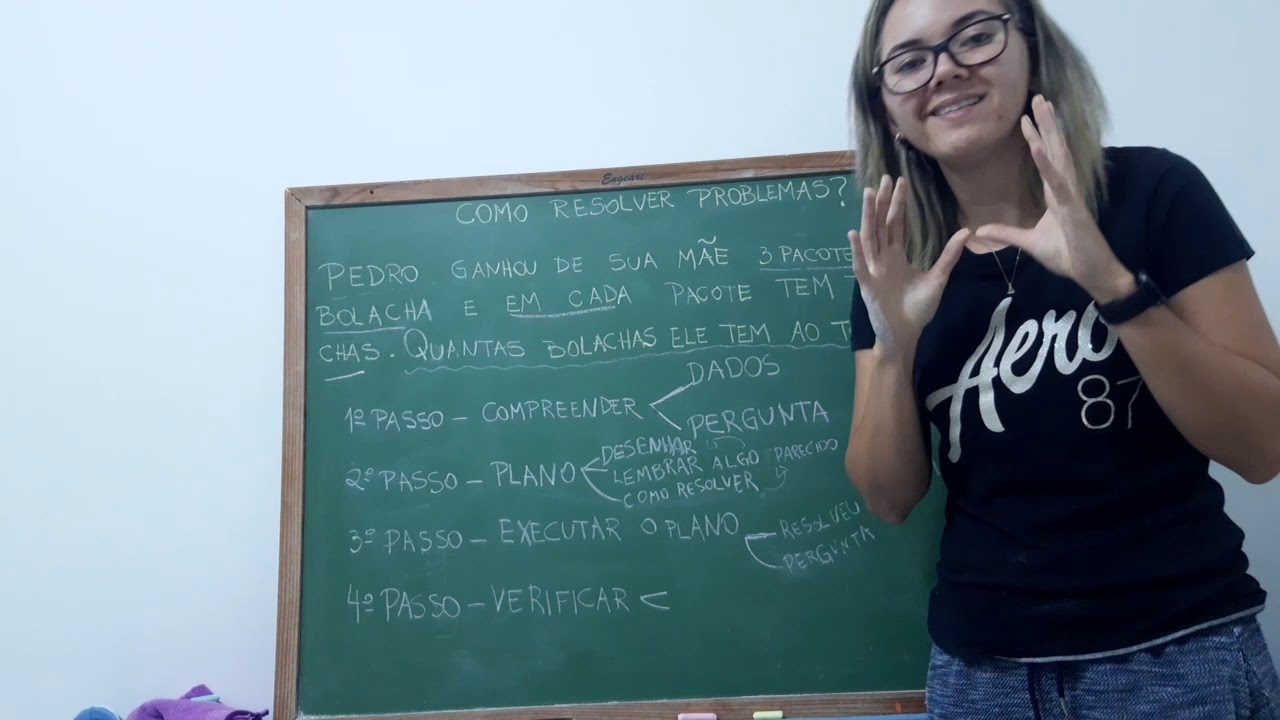 Engeart
COMO RESOLVER PROBLEMAS?
PEDRO GANHOU DE SUA MÃE 3 PACOTE
BOLACHA E EM CADA PACOTE TEM
CHAS. QUANTAS BOLACHAS ELE TEM AO T
1º PASSO - COMPREENDER < DADOS
PERGUNTA
2º PASSO - PLANO < DESENHAR
LEMBRAR ALGO PARECIDO
COMO RESOLVER
3º PASSO - EXECUTAR O PLANO < RESOLVEU
PERGUNTA
4º PASSO - VERIFICAR <
Aero
87